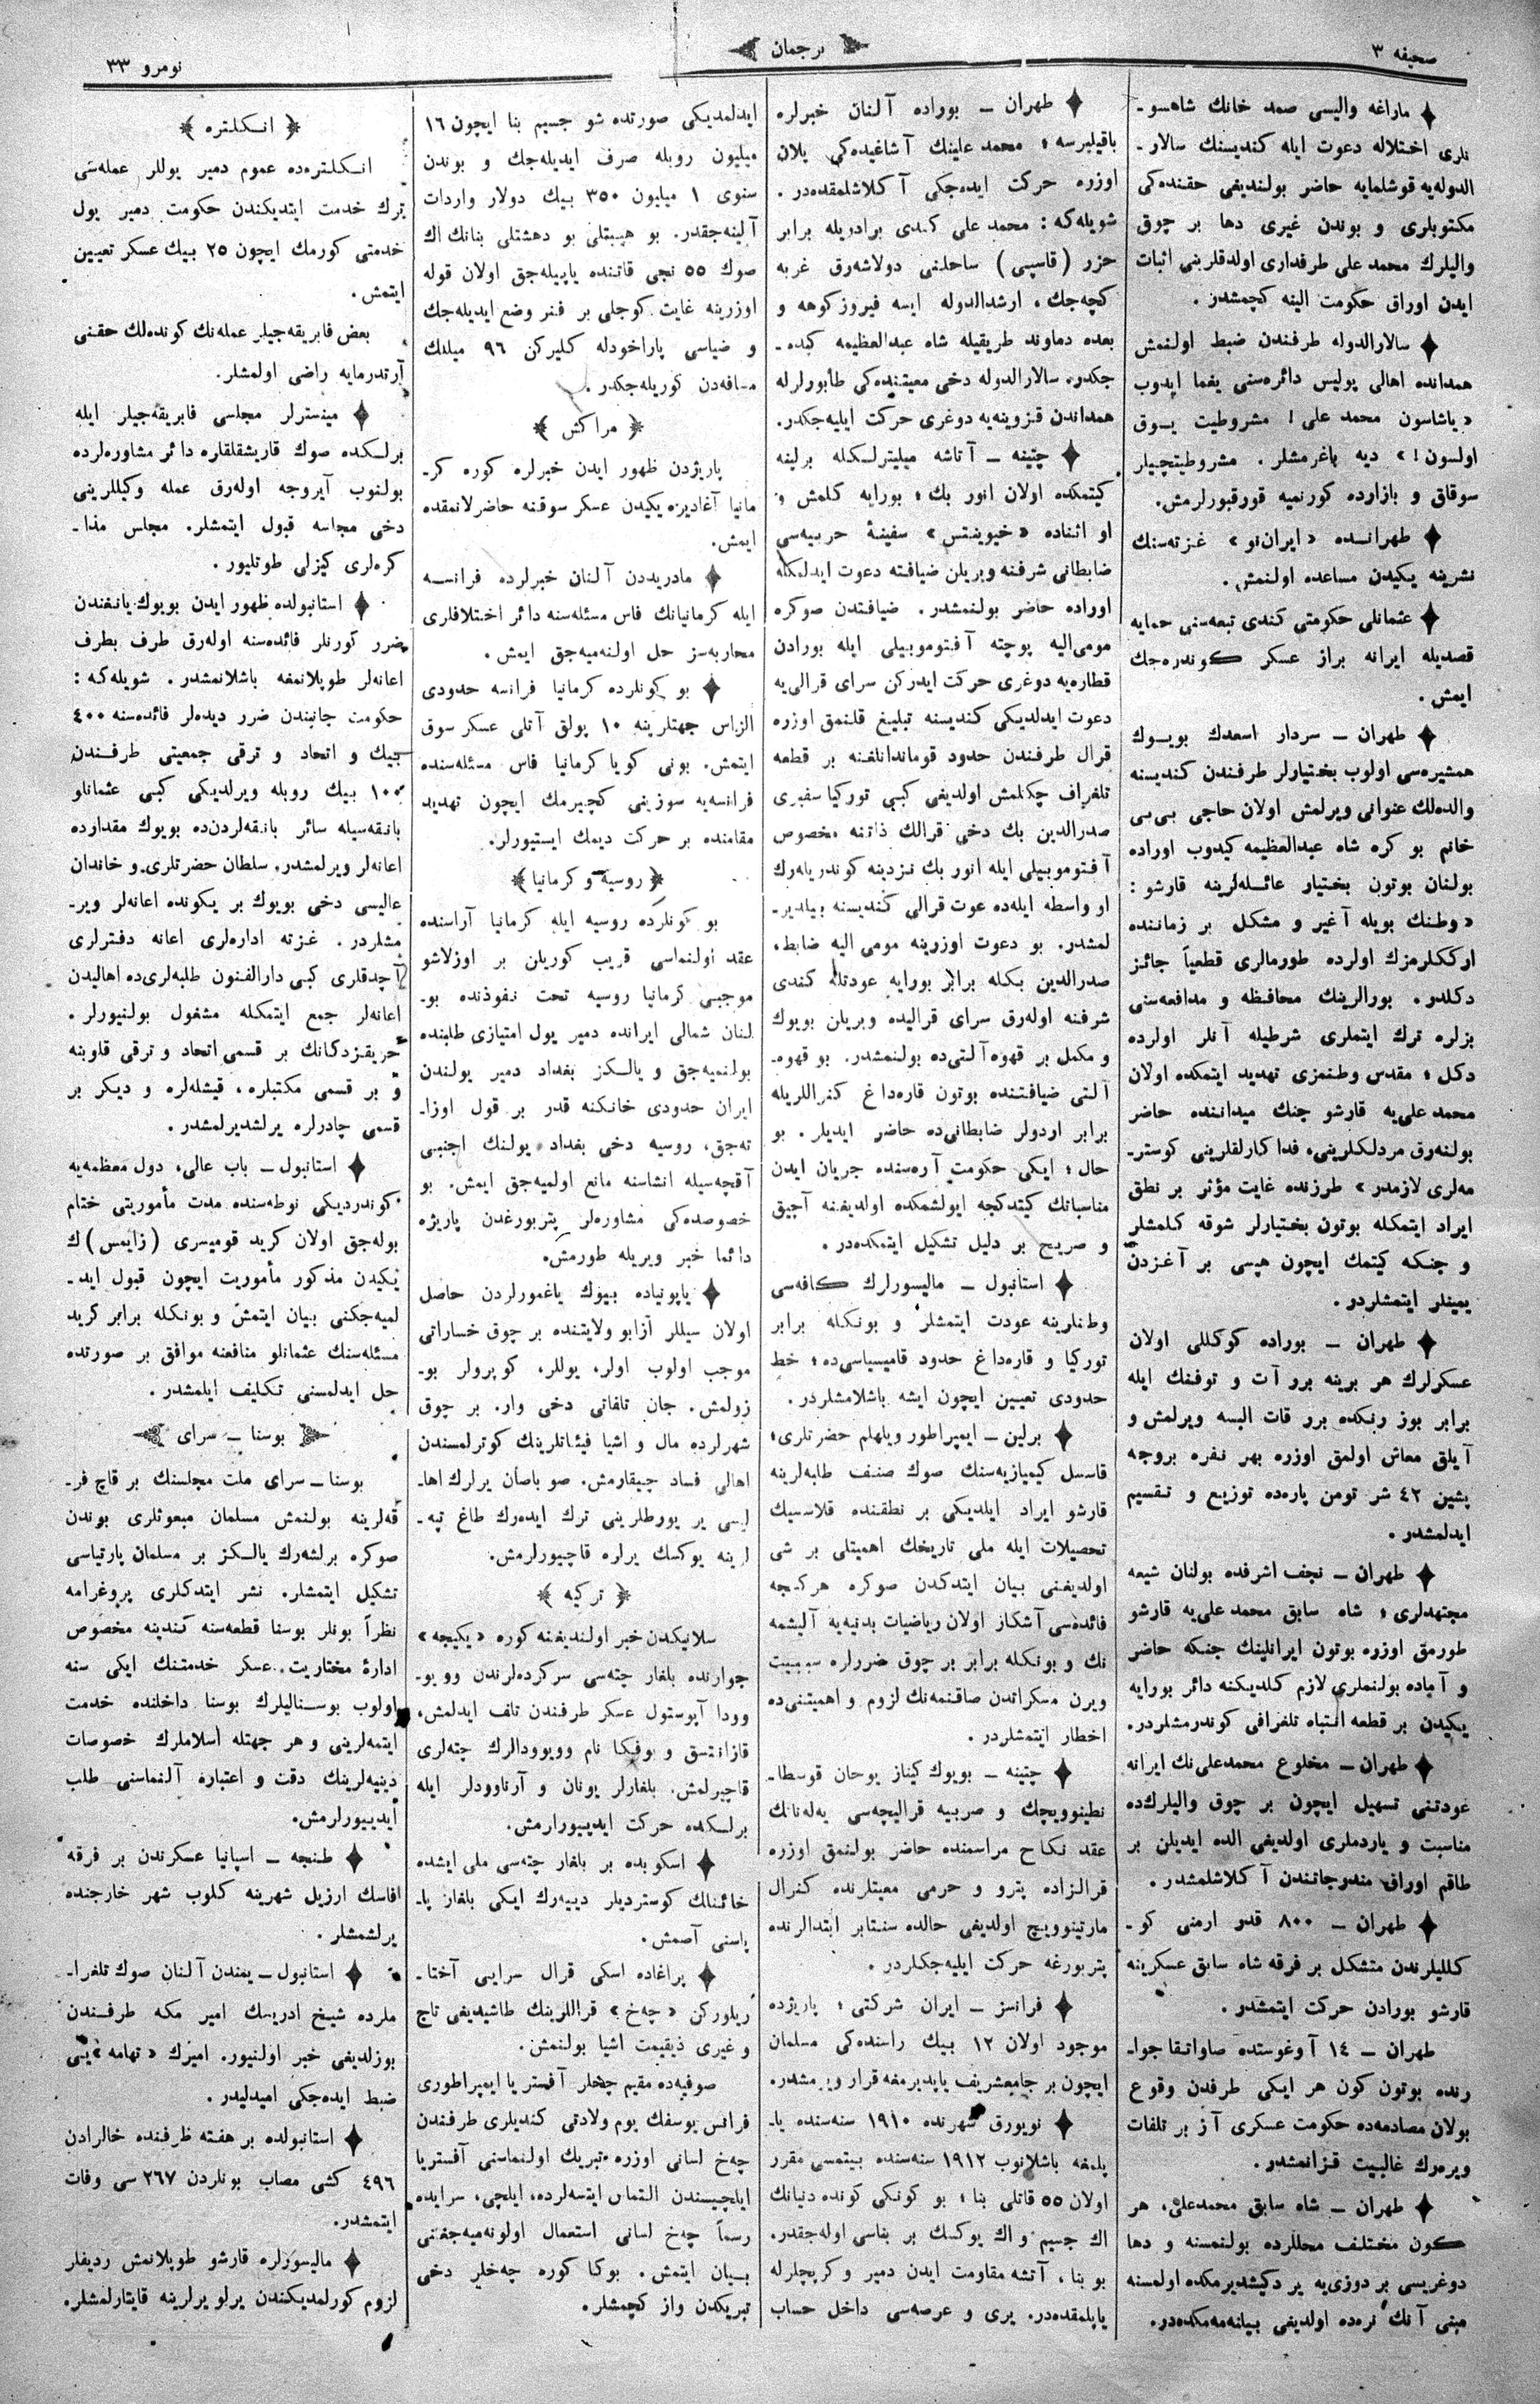 صحیفه ٣
ترجمان
نومرو ٣٣
ماراغه والیسی صمد خانك شاهسو-
نلری اختلاله دعوت ایله كندیسنك سالار-
الدوله‌یه قوشلمایه حاضر بولندیغی حقنده‌كی
مكتوبلری و بوندن غیری دها بر چوق
والیلرك محمد علی طرفداری اولدقلرینی اثبات
ایدن اوراق حكومت الینه كچمشدر.
سالارالدوله طرفندن ضبط اولنمش
همدانده اهالی پولیس دائره‌سنی یغما ایدوب
«یاشاسون محمد علی! مشروطیت یوق
اولسون!» دیه باغرمشلر. مشروطیتچیلر
سوقاق و بازارده كورنمیه قورقیورلرمش.
طهرانده «ایران‌نو» غزته‌سنك
نشرینه یكیدن مساعده اولنمش.
عثمانلی حكومتی كندی تبعه‌سنی حمایه
قصدیله ایرانه براز عسكر كوندره‌جك
ایمش.
طهران – سردار اسعدك بویوك
همشیره‌سی اولوب بختیارلر طرفندن كندیسنه
والده‌لك عنوانی ویرلمش اولان حاجی بی‌بی
خانم بو كره شاه عبدالعظیمه كیدوب اوراده
بولنان بوتون بختیار عائله‌لرینه قارشو:
«وطنك بویله آغیر و مشكل بر زماننده
ارككلرمزك اولرده طورمالری قطعیاً جائز
دكلدر. بورالرینك محافظه و مدافعه‌سنی
بزلره ترك ایتملری شرطیله آنلر اولرده
دكل، مقدس وطنمزی تهدید ایتمكده اولان
محمد علی‌یه قارشو جنك میداننده حاضر
بولنه‌رق مردلكلرینی، فداكارلقلرینی كوستر-
مه‌لری لازمدر» طرزنده غایت مؤثر بر نطق
ایراد ایتمكله بوتون بختیارلر شوقه كلمشلر
و جنكه كیتمك ایچون هپسی بر آغزدن
یمینلر ایتمشلردر.
طهران – بوراده كوكللی اولان
عسكرلرك هر برینه برر آت و توفنك ایله
برابر بوز رنكده برر قات البسه ویرلمش و
آیلق معاش اولمق اوزره بهر نفره بروجه
پشین ٤٢ شر تومن پاره‌ده توزیع و تقسیم
ایدلمشدر.
طهران – نجف اشرفده بولنان شیعه
مجتهدلری، شاه سابق محمد علی‌یه قارشو
طورمق اوزره بوتون ایرانلینك جنكه حاضر
و آماده بولنملری لازم كلدیكنه دائر بورایه
یكیدن بر قطعه انتباه تلغرافی كوندرمشلردر.
طهران – مخلوع محمد علی‌نك ایرانه
عودتنی تسهیل ایچون بر چوق والیلرك‌ده
مناسبت و یاردملری اولدیغی الده ایدیلن بر
طاقم اوراق مندرجاتندن آكلاشلمشدر.
طهران – ٨٠٠ قدر ارمنی كو-
كللیلرندن متشكل بر فرقه شاه سابق عسكرینه
قارشو بورادن حركت ایتمشدر.
طهران – ١٤ آوغوستده صاواتقا جوا-
رنده بوتون كون هر ایكی طرفدن وقوع
بولان مصادمه‌ده حكومت عسكری آز بر تلفات
ویره‌رك غالبیت قزانمشدر.
طهران – شاه سابق محمدعلی، هر
كون مختلف محللرده بولنمسنه و دها
دوغریسی بر دوزی‌یه یر دكیشدیرمكده اولمسنه
مبنی آنك نره‌ده اولدیغی بیانه‌مه‌مكده‌در.
طهران – بوراده آلنان خبرلره
باقیلیرسه، محمد علینك آشاغیده‌كی پلان
اوزره حركت ایده‌جكی آكلاشلمقده‌در.
شویله‌كه: محمد علی كندی برادریله برابر
حزر (قاسپی) ساحلنی دولاشه‌رق غربه
كچه‌جك، ارشدالدوله ایسه فیروزكوهه و
بعده دماوند طریقیله شاه عبدالعظیمه كیده-
جكدر، سالارالدوله دخی معیتنده‌كی طابورلرله
همداندن قزوینه‌یه دوغری حركت ایلیه‌جكدر.
چتینه – آتاشه میلیترلكله برلینه
كیتمكده اولان انور بك، بورایه كلمش و
او اثناده «خیوینتس» سفینهٔ حربیه‌سی
ضابطانی شرفنه ویریلن ضیافته دعوت ایدلمكله
اوراده حاضر بولنمشدر. ضیافتدن صوكره
مومی‌الیه پوچته آفتوموبیلی ایله بورادن
قطاره‌یه دوغری حركت ایدركن سرای قرالی‌یه
دعوت ایدلدیكی كندیسنه تبلیغ قلنمق اوزره
قرال طرفندن حدود قوماندانلغنه بر قطعه
تلغراف چكلمش اولدیغی كبی توركیا سفیری
صدرالدین بك دخی قرالك ذاتنه مخصوص
آفتوموبیلی ایله انور بك نزدینه كوندریله‌رك
او واسطه ایله‌ده عوت قرالی كندیسنه بیلدیر-
لمشدر. بو دعوت اوزرینه مومی الیه ضابط،
صدرالدین بكله برابر بورایه عودتله كندی
شرفنه اوله‌رق سرای قرالیده ویریلن بویوك
و مكمل بر قهوه‌آلتی‌ده بولنمشدر. بو قهوه-
آلتی ضیافتنده بوتون قاره‌داغ كنراللریله
برابر اردولر ضابطانی‌ده حاضر ایدیلر. بو
حال، ایكی حكومت آره‌سنده جریان ایدن
مناسباتك كیتدكجه ایولشمكده اولدیغنه آچیق
و صریح بر دلیل تشكیل ایتمكده‌در.
استانبول – مالیسورلرك كافه‌سی
وطنلرینه عودت ایتمشلر و بونكله برابر
توركیا و قاره‌داغ حدود قامیسیاسی‌ده، خط
حدودی تعیین ایچون ایشه باشلامشلردر.
برلین – ایمپراطور ویلهلم حضرتلری،
قاسسل كیمیازیه‌سنك صوك صنف طلبه‌لرینه
قارشو ایراد ایلدیكی بر نطقنده قلاسیك
تحصیلات ایله ملی تاریخك اهمیتلی بر شی
اولدیغنی بیان ایتدكدن صوكره هركجه
فائده‌سی آشكار اولان ریاضیات بدنیه‌یه آلیشمه
نك و بونكله برابر بر چوق ضررلره سببیت
ویرن مسكراتدن صاقنمه‌نك لزوم و اهمیتنی‌ده
اخطار ایتمشلردر.
چتینه – بویوك كیناز یوحان قوسطا-
نطینوویچك و صربیه قرالیچه‌سی یه‌له‌نانك
عقد نكاح مراسمنده حاضر بولنمق اوزره
قرالزاده پترو و حرمی معیتلرنده كنرال
مارتینوویچ اولدیغی حالده سنتابر ابتدالرنده
پتربورغه حركت ایلیه‌جكلردر.
فرانسز – ایران شركتی، پاریژده
موجود اولان ١٢ بیك راسنده‌كی مسلمان
ایچون بر جامع‌شریف یاپدیرمغه قرار ویرمشدر.
نویورق شهرنده ١٩١٠ سنه‌سنده یا-
پلمغه باشلانوب ١٩١٢ سنه‌سنده بیتمسی مقرر
اولان ٥٥ قاتلی بنا، بو كونكی كونده دنیانك
اك جسیم و اك یوكسك بر بناسی اوله‌جقدر.
بو بنا، آتشه مقاومت ایدن دمیر و كرپچلرله
یاپلمقده‌در. یری و عرصه‌سی داخل حساب
ایدلمدیكی صورتده شو جسیم بنا ایچون ١٦
میلیون روبله صرف ایدیله‌جك و بوندن
سنوی ١ میلیون ٣٥٠ بیك دولار واردات
آلینه‌جقدر. بو هیبتلی بو دهشتلی بنانك اك
صوك ٥٥ نجی قاتنده یاپیله‌جق اولان قوله
اوزرینه غایت كوجلی بر فنر وضع ایدیله‌جك
و ضیاسی پاراخودله كلیركن ٩٦ میلك
مسافه‌دن كوریله‌جكدر.
مراكش
پاریژدن ظهور ایدن خبرلره كوره كر-
مانیا آغادیره یكیدن عسكر سوقنه حاضرلانمقده
ایمش.
مادریددن آلنان خبرلرده فرانسه
ایله كرمانیانك فاس مسئله‌سنه دائر اختلافلری
محاربه‌سز حل اولنه‌میه‌جق ایمش.
بو كونلرده كرمانیا فرانسه حدودی
الزاس جهتلرینه ١٠ پولق آتلی عسكر سوق
ایتمش. بونی كویا كرمانیا فاس مسئله‌سنده
فرانسه‌یه سوزینی كچیرمك ایچون تهدید
مقامنده بر حركت دیمك ایستیورلر.
روسیه و كرمانیا
بو كونلرده روسیه ایله كرمانیا آراسنده
عقد اولنماسی قریب كوریلن بر اوزلاشو
موجبی كرمانیا روسیه تحت نفوذنده بو-
لنان شمالی ایرانده دمیر یول امتیازی طلبنده
بولنمیه‌جق و یالكز بغداد دمیر یولندن
ایران حدودی خانكنه قدر بر قول اوزا-
ته‌جق، روسیه دخی بغداد یولنك اجنبی
آقچه‌سیله انشاسنه مانع اولمیه‌جق ایمش. بو
خصوصده‌كی مشاوره‌لر پتربورغدن پاریژه
دائما خبر ویریله طورمش.
یاپونیاده بیوك یاغمورلردن حاصل
اولان سیللر آزابو ولایتنده بر چوق خساراتی
موجب اولوب اولر، یوللر، كوپرولر بو-
زولمش. جان تلفاتی دخی وار. بر چوق
شهرلرده مال و اشیا فیئاتلرینك كوترلمسندن
اهالی فساد چیقارمش. صو باصان یرلرك اها-
لیسی یر یوردلرینی ترك ایده‌رك طاغ تپه-
لرینه یوكسك یرلره قاچیورلرمش.
تركیه
سلانیكدن خبر اولندیغنه كوره «یكیجه»
جوارنده بلغار چته‌سی سركرده‌لرندن وویو-
وودا آپوستول عسكر طرفندن تلف ایدلمش،
قازانتسق و بوفیكا نام وویوودالرك چته‌لری
قاچیرلمش. بلغارلر یونان و آرناوودلر ایله
برلكده حركت ایدیورارمش.
اسكوبده بر بلغار چته‌سی ملی ایشده
خائنلك كوستردیلر دییه‌رك ایكی بلغار پا-
پاسنی آصمش.
پراغاده اسكی قرال سرایی آختا-
ریلوركن «چه‌خ» قراللرینك طاشیدیغی تاج
و غیری ذیقیمت اشیا بولنمش.
صوفیه‌ده مقیم چخلر آفستریا ایمپراطوری
فرانس یوسفك یوم ولادتی كندیلری طرفندن
چه‌خ لسانی اوزره تبریك اولنماسنی آفستریا
ایلچیسندن التماس ایتسه‌لرده، ایلچی، سرایده
رسماً چه‌خ لسانی استعمال اولونه‌میه‌جغنی
بیان ایتمش. بوكا كوره چه‌خلر دخی
تبریكدن واز كچمشلر.
انكلتره
انكلتره‌ده عموم دمیر یوللر عمله‌سی
ترك خدمت ایتدیكندن حكومت دمیر یول
خدمتی كورمك ایچون ٢٥ بیك عسكر تعیین
ایتمش.
بعض فابریقه‌جیلر عمله‌نك كونده‌لك حقنی
آرتدرمایه راضی اولمشلر.
مینسترلر مجلسی فابریقه‌جیلر ایله
برلكده صوك قاریشقلقلره دائر مشاوره‌لرده
بولنوب آیروجه اوله‌رق عمله وكیللرینی
دخی مجلسه قبول ایتمشلر. مجلس مذا-
كره‌لری كیزلی طوتلیور.
استانبولده ظهور ایدن بویوك یانغندن
ضرر كورنلر فائده‌سنه اوله‌رق طرف بطرف
اعانه‌لر طوپلانمغه باشلانمشدر. شویله‌كه:
حكومت جانبندن ضرر دیده‌لر فائده‌سنه ٤٠٠
بیك و اتحاد و ترقی جمعیتی طرفندن
١٠٠ بیك روبله ویرلدیكی كبی عثمانلو
بانقه‌سیله سائر بانقه‌لردن‌ده بویوك مقدارده
اعانه‌لر ویرلمشدر. سلطان حضرتلری و خاندان
عالیسی دخی بویوك بر یكونده اعانه‌لر ویر-
مشلردر. غزته اداره‌لری اعانه دفترلری
آچدقلری كبی دارالفنون طلبه‌لری‌ده اهالیدن
اعانه‌لر جمع ایتمكله مشغول بولنیورلر.
حریقزدكانك بر قسمی اتحاد و ترقی قلوبنه
و بر قسمی مكتبلره، قیشله‌لره و دیكر بر
قسمی چادرلره یرلشدیرلمشدر.
استانبول – باب عالی، دول معظمه‌یه
كوندردیكی نوطه‌سنده مدت مأموریتی ختام
بوله‌جق اولان كرید قومیسری (زایمس) ك
یكیدن مذكور مأموریت ایچون قبول اید-
لمیه‌جكنی بیان ایتمش و بونكله برابر كرید
مسئله‌سنك عثمانلو منافعنه موافق بر صورتده
حل ایدلمسنی تكلیف ایلمشدر.
بوسنا – سرای
بوسنا – سرای ملت مجلسنك بر قاچ فر-
قه‌لرینه بولنمش مسلمان مبعوثلری بوندن
صوكره برلشه‌رك یالكز بر مسلمان پارتیاسی
تشكیل ایتمشلر. نشر ایتدكلری پروغرامه
نظراً بونلر بوسنا قطعه‌سنه كندینه مخصوص
ادارهٔ مختاریت، عسكر خدمتنك ایكی سنه
اولوب بوسنالیلرك بوسنا داخلنده خدمت
ایتمه‌لرینی و هر جهتله اسلاملرك خصوصات
دینیه‌لرینك دقت و اعتباره آلنماسنی طلب
ایدییورلرمش.
طنجه – اسپانیا عسكرندن بر فرقه
افاسك ارزیل شهرینه كلوب شهر خارجنده
یرلشمشلر.
استانبول – یمندن آلنان صوك تلغرا-
ملرده شیخ ادریسك امیر مكه طرفندن
بوزلدیغی خبر اولنیور. امیرك «تهامه» یی
ضبط ایده‌جكی امیدلیدر.
استانبولده بر هفته ظرفنده خالرادن
٤٩٦ كشی مصاب بونلردن ٢٦٧ سی وفات
ایتمشدر.
مالیسورلره قارشو طوپلانمش ردیفلر
لزوم كورلمدیكندن یرلو یرلرینه قایتارلمشلر.